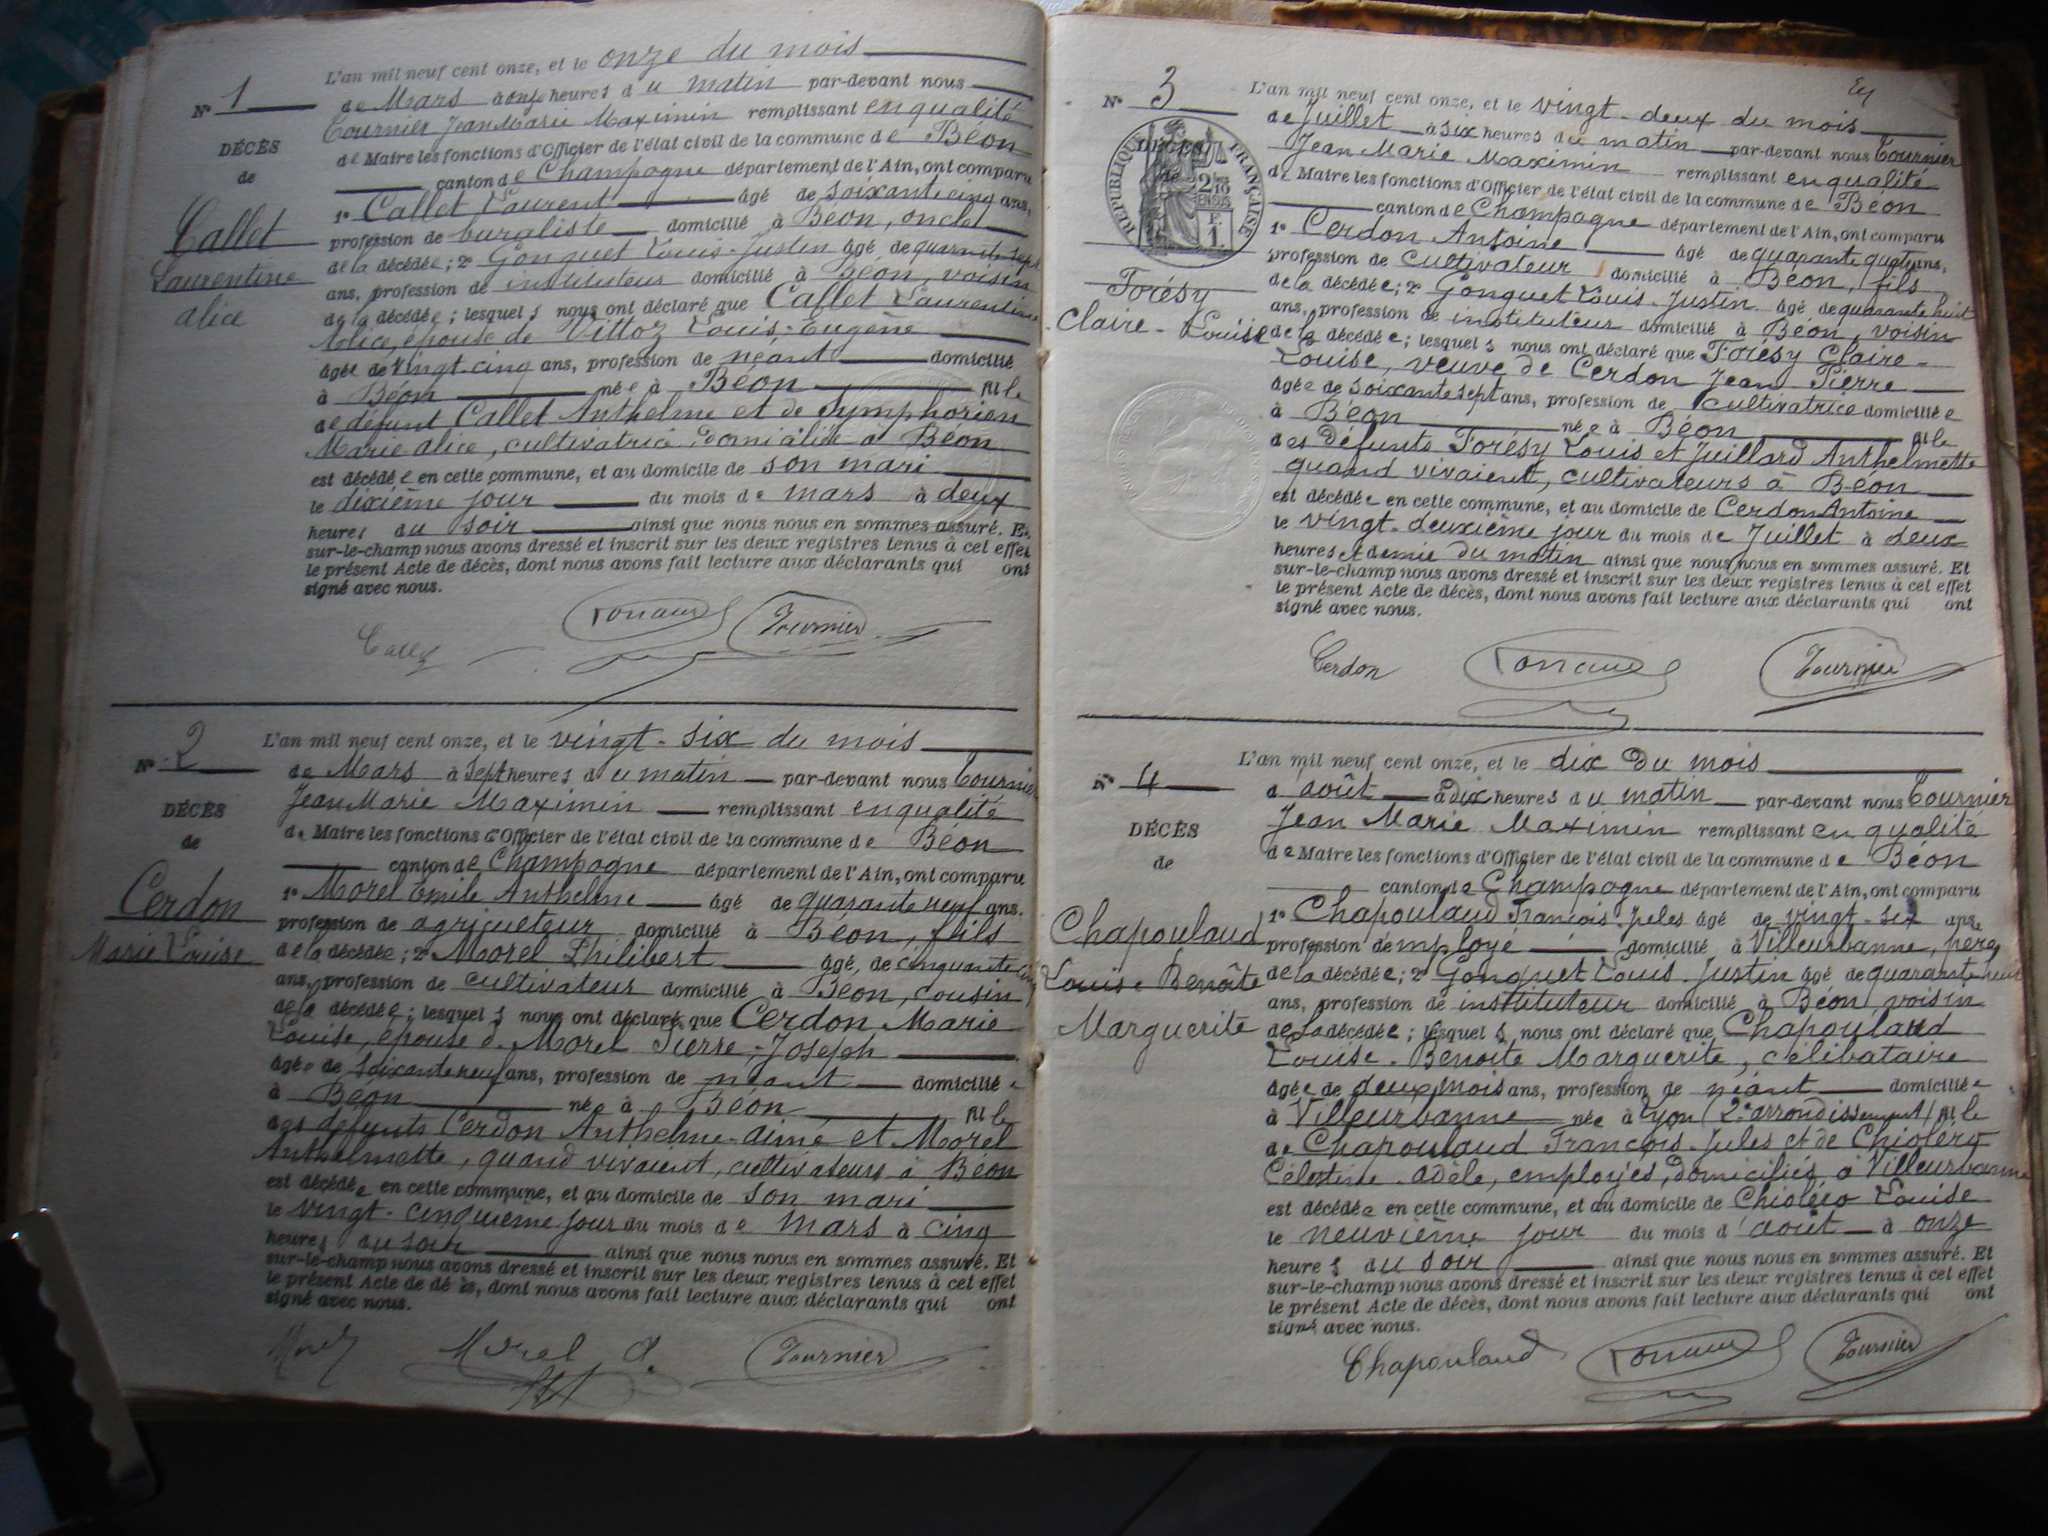 L'an mil neuf cent onze, et le onze du mois
N° 1
de Mars à onze heures du matin par-devant nous
Tournier Jean Marie Maximin remplissant en qualité
DÉCÈS
de Maire les fonctions d'Officier de l'état civil de la commune de Béon
de
canton de Champagne département de l'Ain, ont comparu
1° Callet Laurent âgé de soixante cinq ans,
Callet
profession de buraliste domicilié à Béon, oncle
Laurentine
de la décédée; 2° Gonguet Louis-Justin âgé de quarante sept
alice
ans, profession de instituteur domicilié à Béon, voisin
de la décédée; lesquels nous ont déclaré que Callet Laurentine
Alice, épouse de Vittoz Louis-Eugène
âgée de vingt-cinq ans, profession de néant domicilié
à Béon née à Béon fille
de défunt Callet Anthelme et de Symphorien
Marie alice, cultivatrice domiciliée à Béon
est décédée en cette commune, et au domicile de son mari
le dixième jour du mois de mars à deux
heures du soir ainsi que nous nous en sommes assuré. Et
sur-le-champ nous avons dressé et inscrit sur les deux registres tenus à cet effet
le présent Acte de décès, dont nous avons fait lecture aux déclarants qui ont
signé avec nous.
Tournier
L'an mil neuf cent onze, et le vingt-six du mois
N° 2
de Mars à sept heures du matin par-devant nous Tournier
Jean Marie Maximin remplissant en qualité
DÉCÈS
de Maire les fonctions d'Officier de l'état civil de la commune de Béon
de
canton de Champagne département de l'Ain, ont comparu
1° Morel Emile Anthelme âgé de quarante neuf ans.
Cerdon
profession de agriculteur domicilié à Béon, fils
Marie Louise
de la décédée; 2° Morel Philibert âgé, de cinquante
ans, profession de cultivateur domicilié à Béon, cousin
de la décédée; lesquels nous ont déclaré que Cerdon Marie
Louise, épouse de Morel Pierre-Joseph
âgée de soixante neuf ans, profession de néant domicilié
à Béon née à Béon fille
des défunts Cerdon Anthelme-aimé et Morel
Anthelmette, quand vivaient, cultivateurs à Béon
est décédée en cette commune, et au domicile de son mari
le vingt-cinquième jour du mois de mars à cinq
heures du soir ainsi que nous nous en sommes assuré. Et
sur-le-champ nous avons dressé et inscrit sur les deux registres tenus à cet effet
le présent Acte de décès, dont nous avons fait lecture aux déclarants qui ont
signé avec nous.
Morel Tournier
L'an mil neuf cent onze, et le vingt-deux du mois
N° 3
de Juillet à six heures du matin par-devant nous Tournier
Jean Marie Maximin remplissant en qualité
DÉCÈS
de
RÉPUBLIQUE FRANÇAISE
de Maire les fonctions d'Officier de l'état civil de la commune de Béon
canton de Champagne département de l'Ain, ont comparu
1° Cerdon Antoine âgé de quarante quatre ans,
profession de cultivateur domicilié à Béon, fils
Forésy
de la décédée; 2° Gonguet Louis-Justin âgé de quarante huit
Claire-Louise
ans, profession de instituteur domicilié à Béon, voisin
de la décédée; lesquels nous ont déclaré que Forésy Claire-
Louise, veuve de Cerdon Jean Pierre
âgée de soixante sept ans, profession de cultivatrice domiciliée
à Béon née à Béon fille
des défunts Forésy Louis et Juillard Anthelmette
quand vivaient, cultivateurs à Béon
est décédée en cette commune, et au domicile de Cerdon Antoine
le vingt-deuxième jour du mois de Juillet à deux
heures et demie du matin ainsi que nous nous en sommes assuré. Et
sur-le-champ nous avons dressé et inscrit sur les deux registres tenus à cet effet
le présent Acte de décès, dont nous avons fait lecture aux déclarants qui ont
signé avec nous.
Cerdon Tournier
L'an mil neuf cent onze, et le dix du mois
N° 4
d'août à dix heures du matin par-devant nous Tournier
Jean Marie Maximin remplissant en qualité
DÉCÈS
de Maire les fonctions d'Officier de l'état civil de la commune de Béon
de
canton de Champagne département de l'Ain, ont comparu
1° Chapoulaud François-Jules âgé de vingt-six ans,
Chapoulaud
profession d'employé domicilié à Villeurbanne, père
Louise Benoîte
de la décédée; 2° Gonguet Louis-Justin âgé de quarante huit
ans, profession de instituteur domicilié à Béon, voisin
Marguerite
de la décédée; lesquels nous ont déclaré que Chapoulaud
Louise-Benoite Marguerite, célibataire
âgée de deux mois ans, profession de néant domiciliée
à Villeurbanne née à Lyon (2e arrondissement) fille
de Chapoulaud François-Jules et de Chioléro
Célestine-adèle, employés, domiciliés à Villeurbanne
est décédée en cette commune, et au domicile de Chioléro Louise
le neuvième jour du mois d'août à onze
heures du soir ainsi que nous nous en sommes assuré. Et
sur-le-champ nous avons dressé et inscrit sur les deux registres tenus à cet effet
le présent Acte de décès, dont nous avons fait lecture aux déclarants qui ont
signé avec nous.
Chapoulaud Tournier